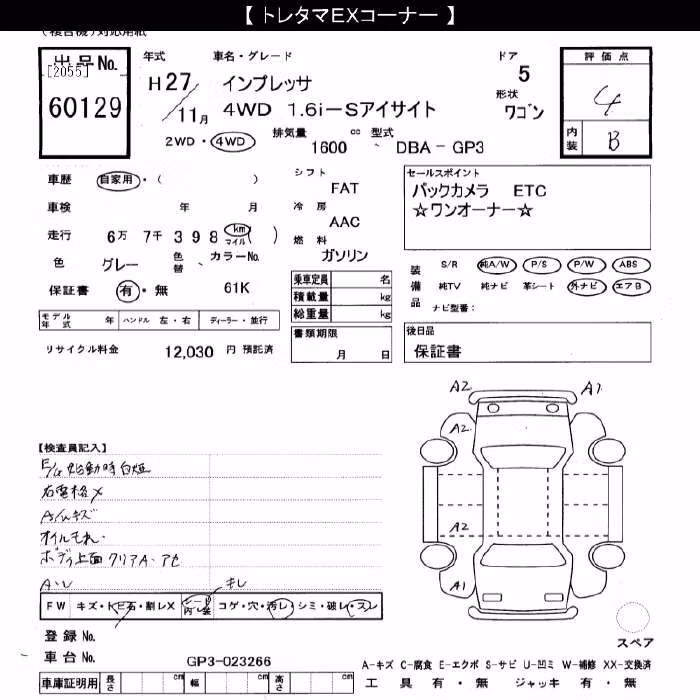 【 トレタマEXコーナー 】
(複合機)対応用紙
出品No.
[2055]
60129
年式
H27/11月
車名・グレード
インプレッサ
4WD 1.6i－Sアイサイト
ドア
5
形状
ワゴン
評価点
4
内装
B
2WD・4WD
排気量
1600
cc
型式
DBA－GP3
車歴 自家用・( )
車検 年 月
走行 6万 7千 398 km マイル ( )
色 グレー 色替 カラーNo.
保証書 有・無 61K
シフト
FAT
冷房
AAC
燃料
ガソリン
セールスポイント
バックカメラ ETC
☆ワンオーナー☆
装備品
S/R 純A/W P/S P/W ABS
純TV 純ナビ 革シート 外ナビ エアB
ナビ型番:
乗車定員 名
積載量 kg
総重量 kg
モデル年式 年 ハンドル 左・右 ディーラー・並行
リサイクル料金 12,030 円 預託済
書類期限
月 日
後日品
保証書
A2 A1
A2
A2
A1
【検査員記入】
E/G始動時白煙
右電格X
A/Wキズ
オイルもれ.
ボディ上面 クリアA.アセ
A.レ
キレ
FW キズ・トビ石・割レX シート内装 コゲ・穴・汚レ・シミ・破レ・スレ
登録No.
車台No. GP3-023266
車庫証明用 長さ cm 幅 cm 高さ cm
スペア
A-キズ C-腐食 E-エクボ S-サビ U-凹ミ W-補修 XX-交換済
工具 有・無 ジャッキ 有・無